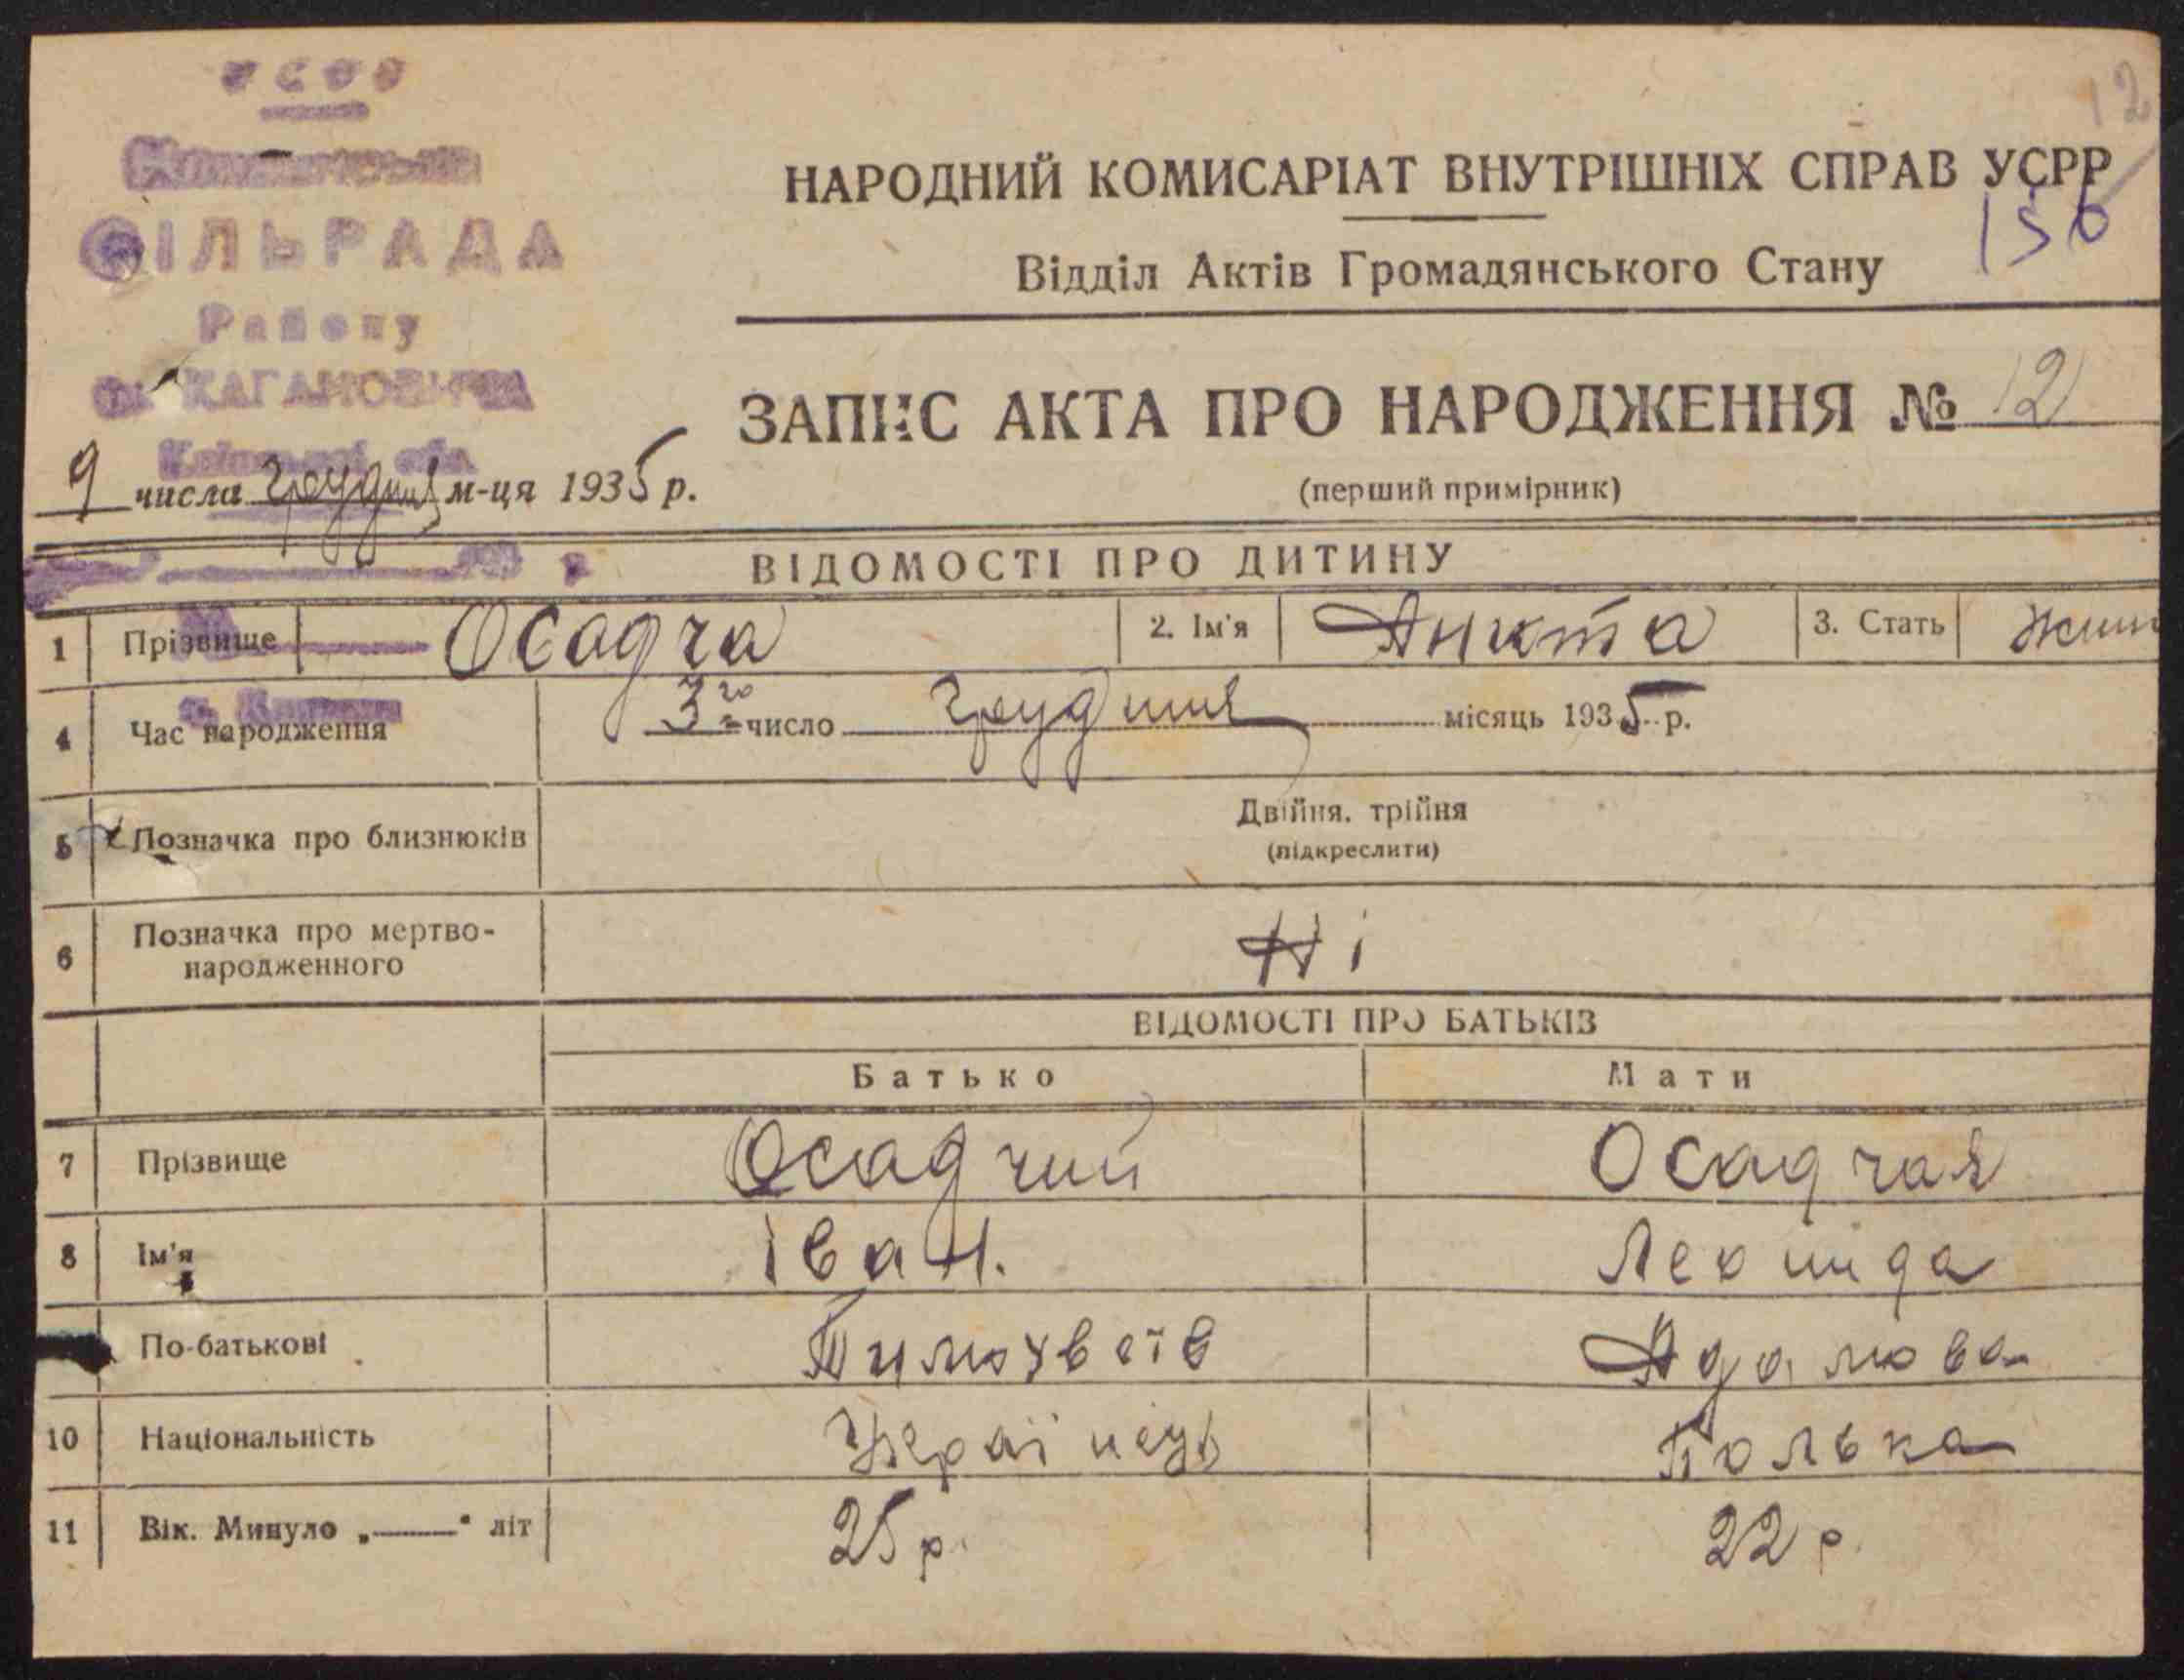 УСРР
СІЛЬРАДА
Району
ім. КАГАНОВИЧА
Київської обл.
12
НАРОДНИЙ КОМИСАРІАТ ВНУТРІШНІХ СПРАВ УСРР
156
Відділ Актів Громадянського Стану
ЗАПИС АКТА ПРО НАРОДЖЕННЯ № 12
(перший примірник)
9 числа грудня м-ця 1935 р.
ВІДОМОСТІ ПРО ДИТИНУ
1 Прізвище Осадча 2. Ім'я Анюта 3. Стать жин
4 Час народження 3го число грудня місяць 1935 р.
5 Позначка про близнюків Двійня, трійня
(підкреслити)
6 Позначка про мертво-
народженного Ні
ВІДОМОСТІ ПРО БАТЬКІВ
Батько Мати
7 Прізвище Осадчий Осадчая
8 Ім'я Іван. Леонида
По-батькові Адамова
10 Національність Українець Полька
11 Вік. Минуло „——“ літ 25 р. 22 р.